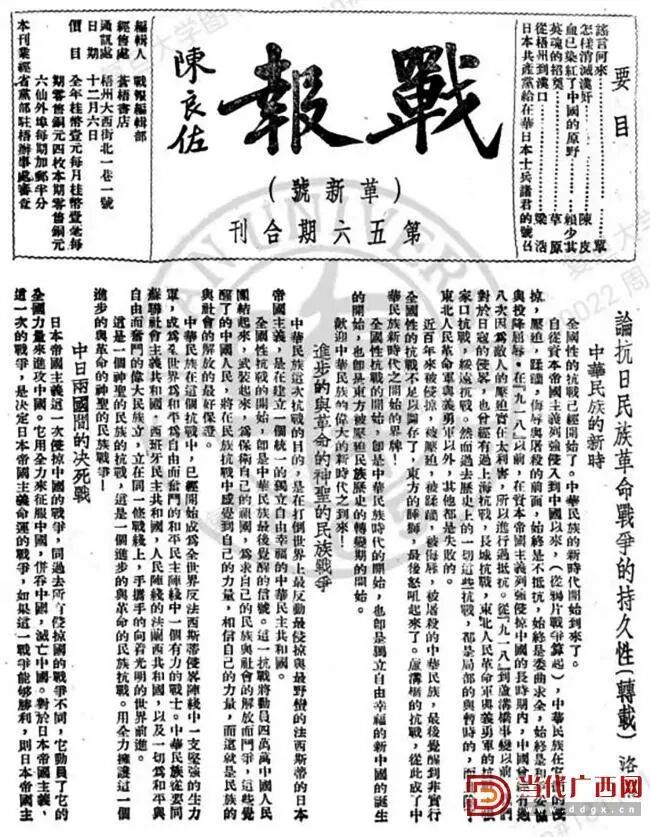 要目
謠言何來……單
怎樣消滅漢奸……陳皮
血已染紅了中國的原野……賴少其
英魂的招奠……草原
從梧州到漢口……梁浩
日本共產黨給在華日本士兵諸君的號召
戰報
陳良佐
(革新號)
第五六期合刊
編輯人 戰報編輯部
經售處 蒼梧書店
通訊處 梧州大西街北一巷一號
日期 十二月六日
價目 全年桂幣壹元每月桂幣壹毫每
期零售銅元四枚本期零售銅元
六仙外埠每期加郵半分
本刊業經省黨部駐梧辦事處審查
論抗日民族革命戰爭的持久性(轉載) 洛
中華民族的新時
全國性的抗戰已經開始了。中華民族的新時代開始到來了。
自從資本帝國主義列強侵入到中國以來,(從鴉片戰爭算起),中華民族在它們的侵
掠,壓迫,蹂躪,侮辱與屠殺的前面,始終是不抵抗,始終是委曲求全,始終是和平妥協
與投降屈辱。在「九一八」以前,在資本帝國主義列強侵掠中國的長時期內,中國曾經有過
八次因為敵人的壓迫實在太厲害,所以進行過抵抗。從「九一八」到蘆溝橋事變以前
對於日寇的侵畧,也曾經有過上海抗戰,長城抗戰,東北人民革命軍與義勇軍的抗戰
家口抗戰,綏遠抗戰。然而過去歷史上的一切這些抗戰,都是局部的與暫時的,而
東北人民革命軍與義勇軍以外,其他都是失敗的。
近百年來被侵掠,被壓迫,被蹂躪,被侮辱,被屠殺的中華民族,最後覺醒到非實行
全國性的抗戰不足以圖存了,東方的睡獅,最後怒吼起來了。蘆溝橋的抗戰,從此成了中
華民族新時代之開始的界牌!
全國性抗戰的開始,即是中華民族新時代的開始,也即是獨立自由幸福的新中國的誕生
的開始,也即是東方被壓迫民族歷史的轉變期的開始。
歡迎中華民族的偉大的新時代之到來!
進步的與革命的神聖的民族戰爭
中華民族這次抗戰的目的,是在打倒世界上最反動最侵掠與最野蠻的法西斯蒂的日本
帝國主義,是在建立一個統一的獨立自由幸福的中華民主共和國。
全國性抗戰的開始,即是中華民族最後覺醒的信號。這一抗戰將動員四萬萬中國人民
團結起來,武裝起來,為保衛自己的祖國,為求自己的民族與社會的解放而鬥爭,這些覺
醒了的中國人民,將在民族抗戰中感覺到自己的力量,相信自己的力量,而這就是民族的
與社會的解放的最好保證。
中華民族在這個抗戰中,已經開始成為全世界反法西斯蒂侵畧陣綫中一支堅強的生力
軍,成為全世界為和平為自由而奮鬥的和平民主陣綫中一個有力的戰士。中華民族從要同
蘇聯社會主義共和國,西班牙民主共和國,人民陣綫的法蘭西共和國,以及一切為和平與
自由而奮鬥的偉大民族立,立在同一條戰綫上,手攜手的向着光明的世界前進。
這是一個神聖的民族的抗戰,這是一個進步的與革命的民族抗戰。用全力擁護這一個
進步的與革命的神聖的民族戰爭!
中日兩國間的决死戰
日本帝國主義這一次侵掠中國的戰爭,同過去所有侵掠中國的戰爭不同,它動員了它的
全國力量來進攻中國。它用全力來征服中國,併吞中國,滅亡中國。對於日本帝國主義,
這一次的戰爭,是決定日本帝國主義命運的戰爭,如果這一戰爭能夠勝利,則日本帝國主
当代广西网
www.ddgx.cn